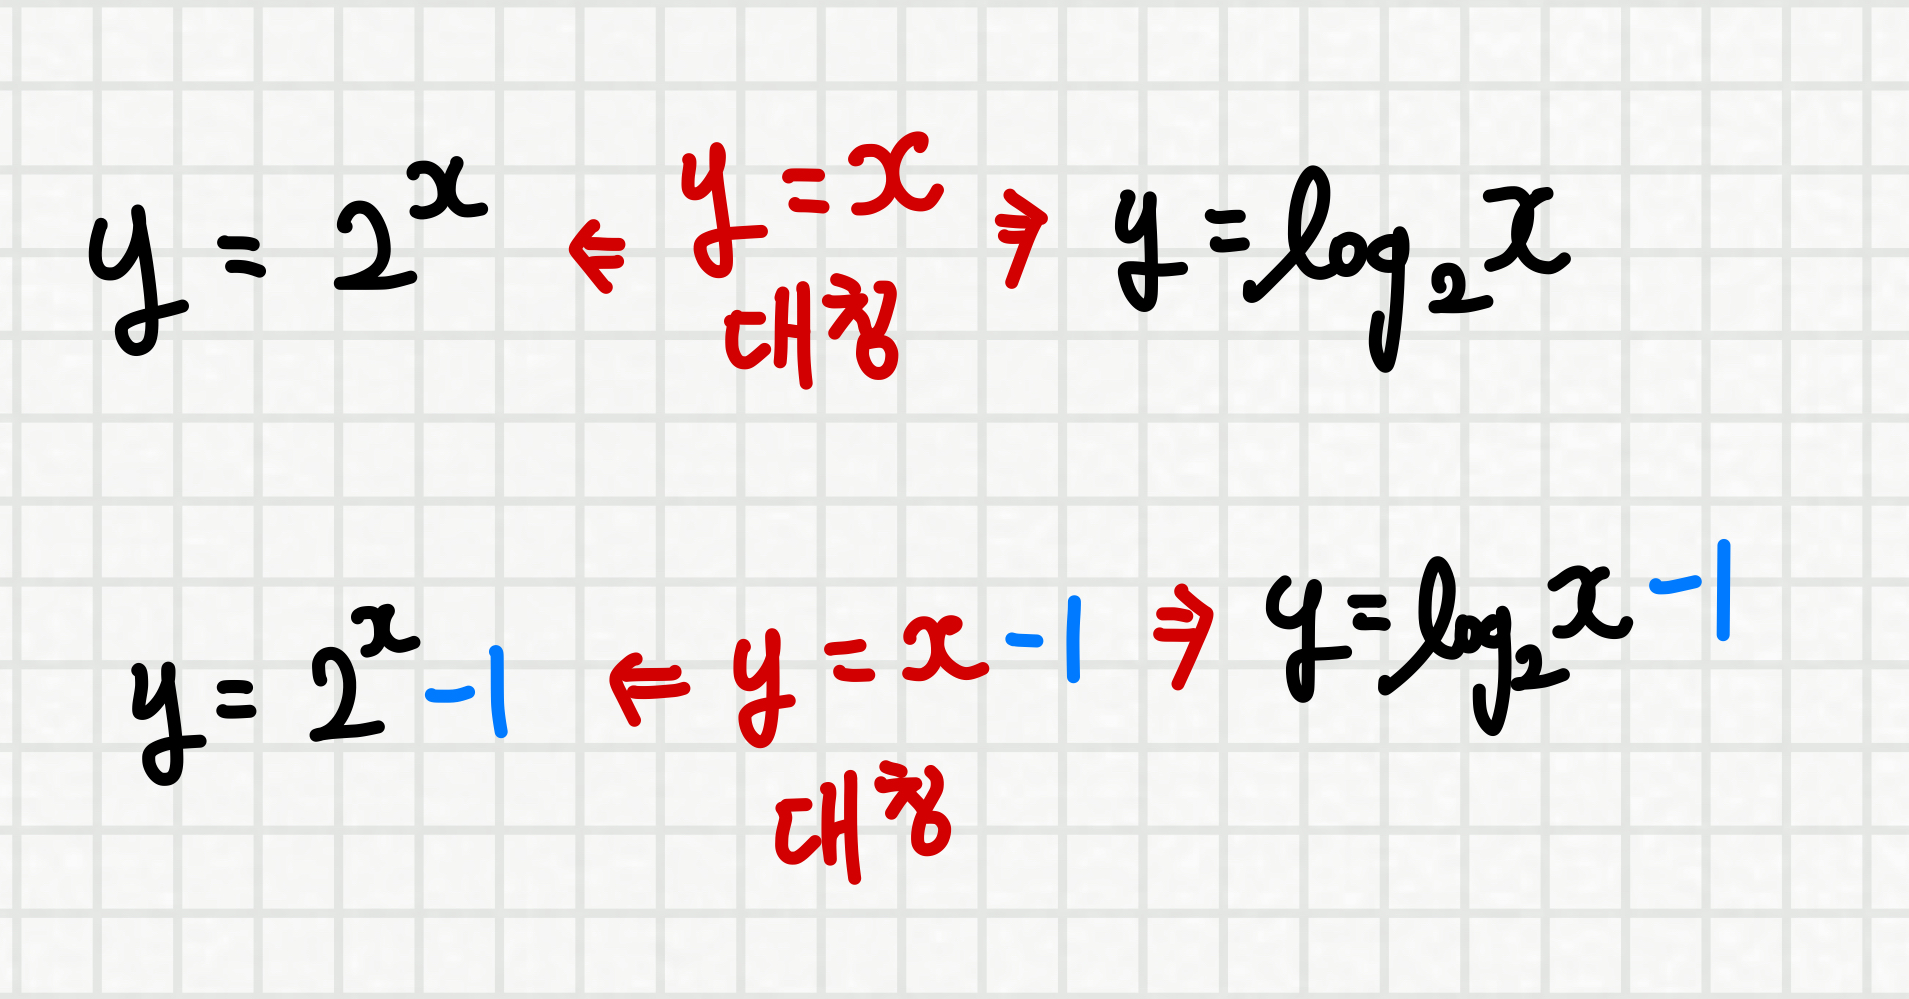 y = 2^x ⇐ y = x ⇒ y = log₂x
대칭
y = 2^x - 1 ⇐ y = x - 1 ⇒ y = log₂x - 1
대칭